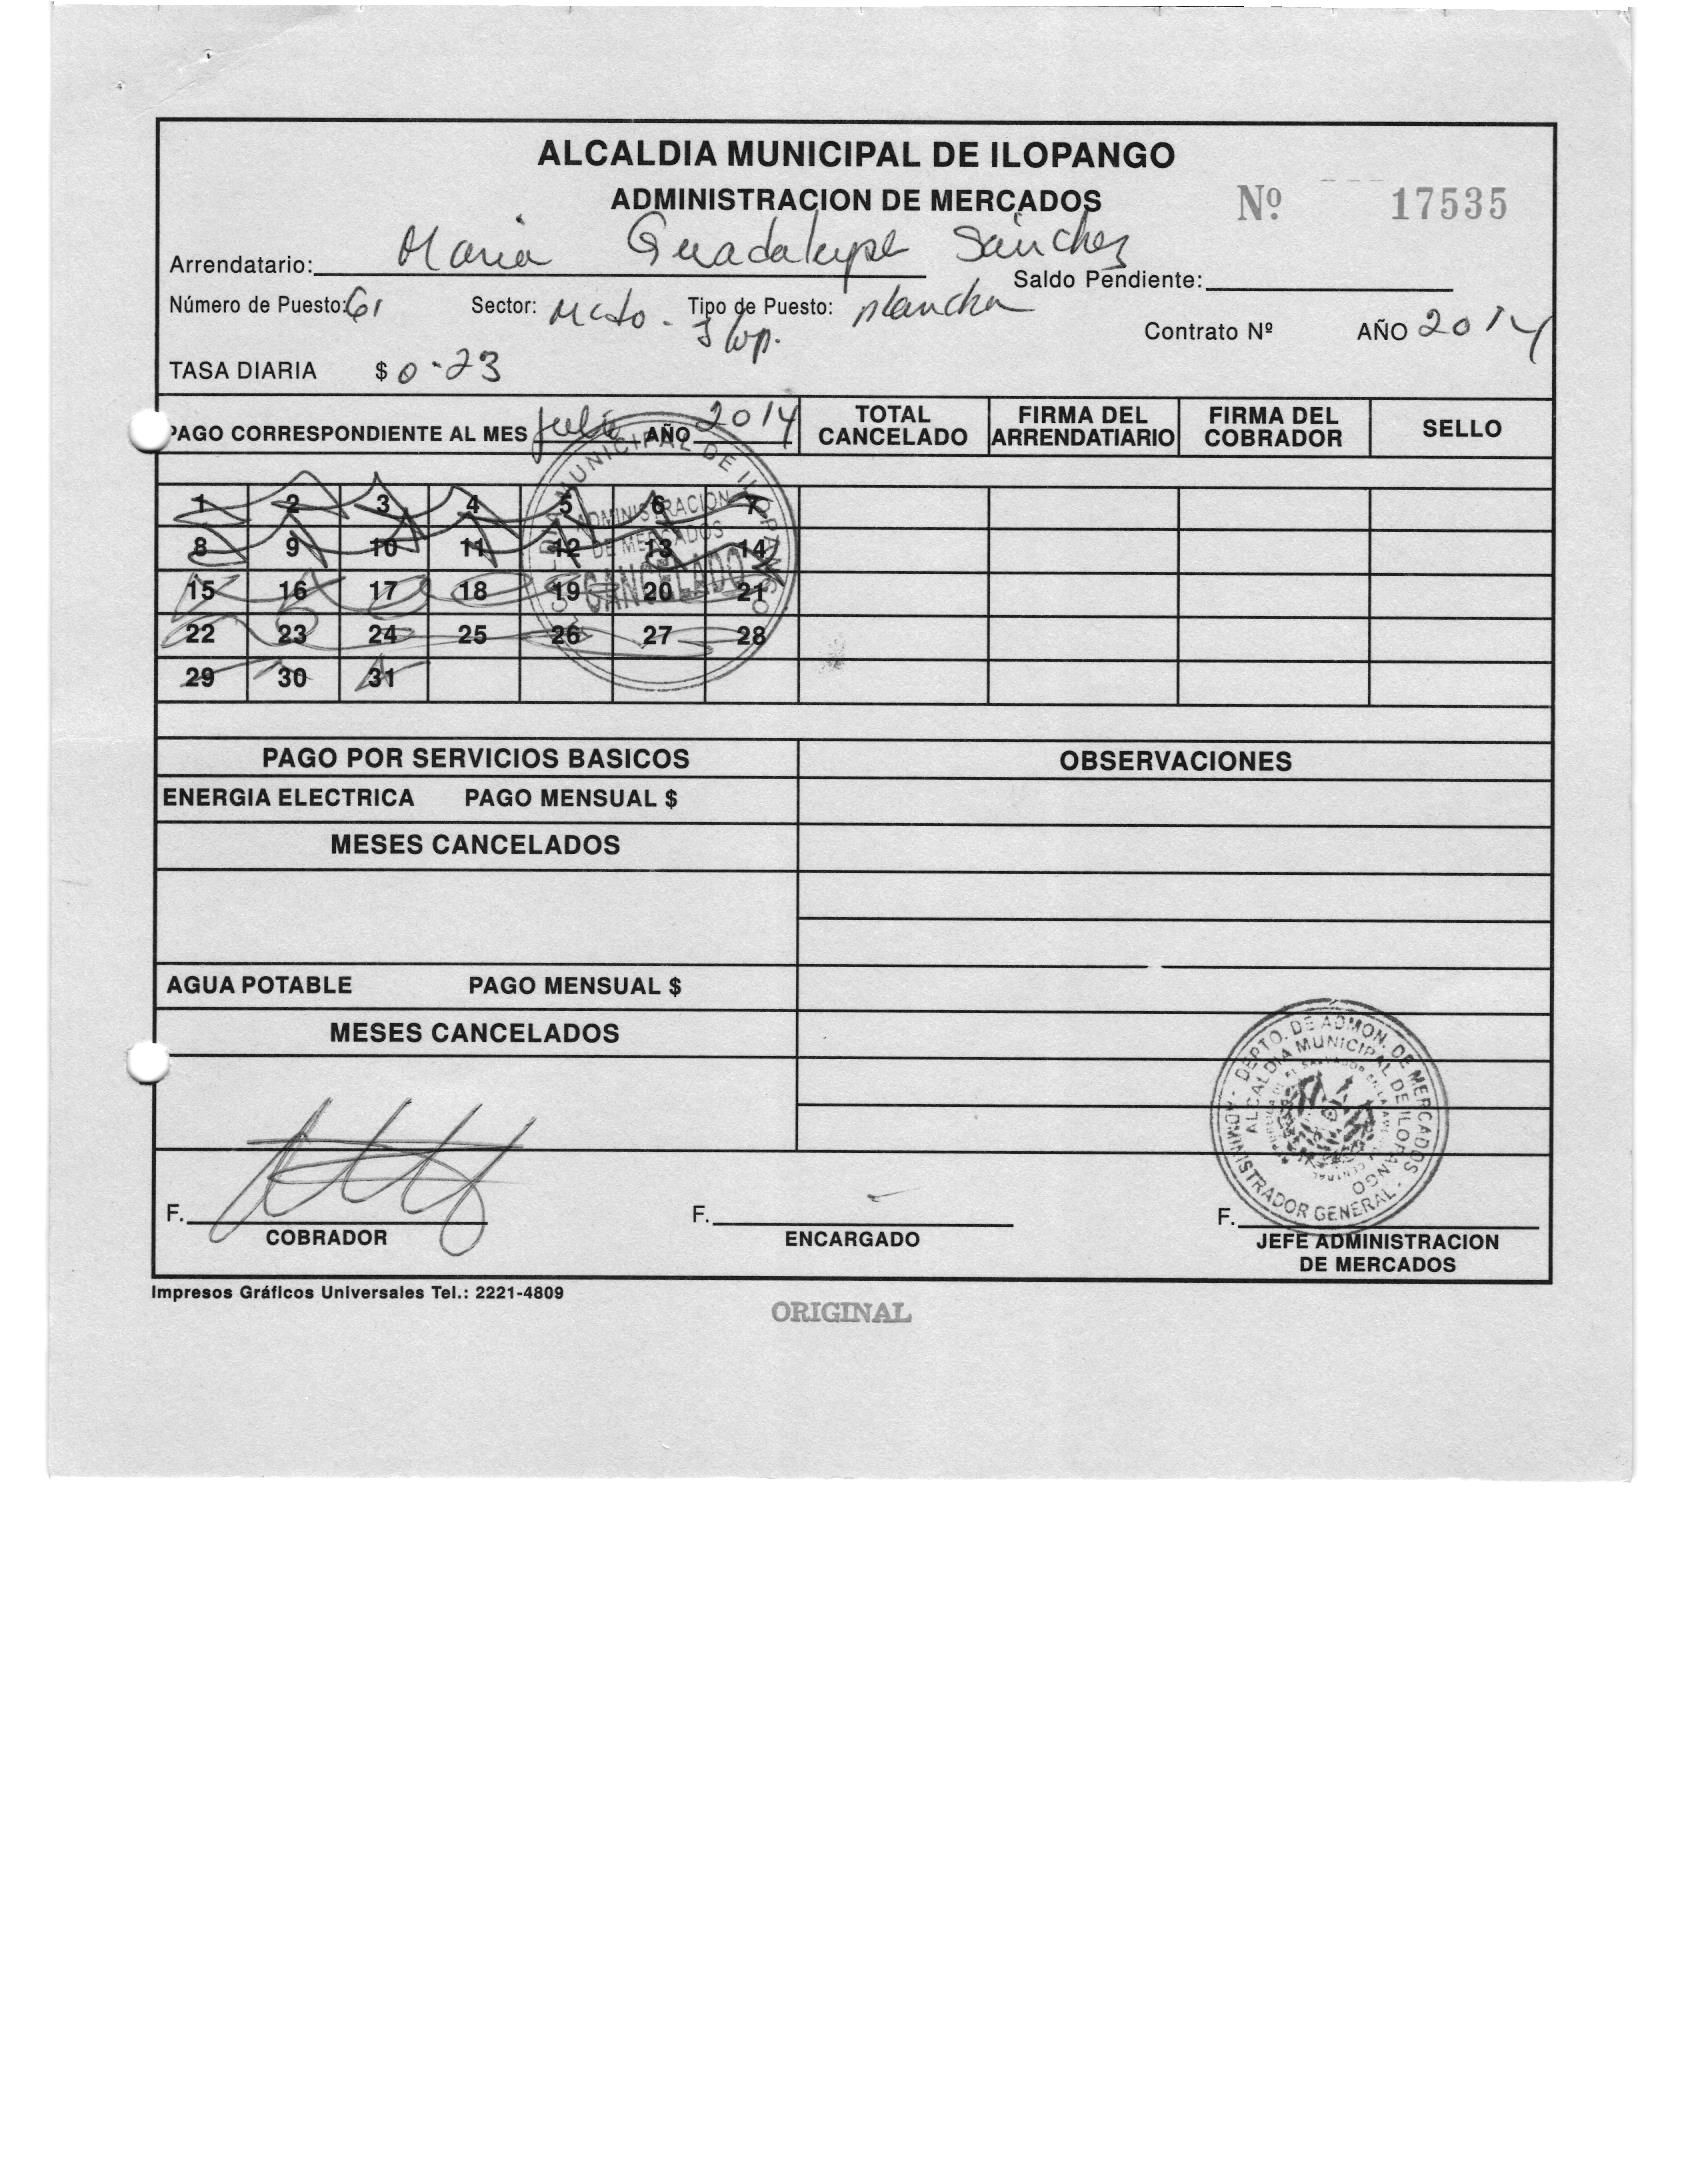 ALCALDIA MUNICIPAL DE ILOPANGO
ADMINISTRACION DE MERCADOS
Nº 17535
Arrendatario: Maria Guadalupe Sánchez
Saldo Pendiente:
Número de Puesto: 61 Sector: Mcdo. Ilop. Tipo de Puesto: plancha
Contrato Nº AÑO 2014
TASA DIARIA $ 0.23
PAGO CORRESPONDIENTE AL MES Julio AÑO 2014 TOTAL CANCELADO FIRMA DEL ARRENDATIARIO FIRMA DEL COBRADOR SELLO
1 2 3 4 5 6 7
8 9 10 11 12 13 14
15 16 17 18 19 20 21
22 23 24 25 26 27 28
29 30 31
ALCALDIA MUNICIPAL DE ILOPANGO
ADMINISTRACION
DE MERCADOS
CANCELADO
PAGO POR SERVICIOS BASICOS OBSERVACIONES
ENERGIA ELECTRICA PAGO MENSUAL $
MESES CANCELADOS
AGUA POTABLE PAGO MENSUAL $
MESES CANCELADOS
DEPTO. DE ADMON. DE MERCADOS
ALCALDIA MUNICIPAL DE ILOPANGO
ADMINISTRADOR GENERAL
F. F. F.
COBRADOR ENCARGADO JEFE ADMINISTRACION
DE MERCADOS
Impresos Gráficos Universales Tel.: 2221-4809
ORIGINAL